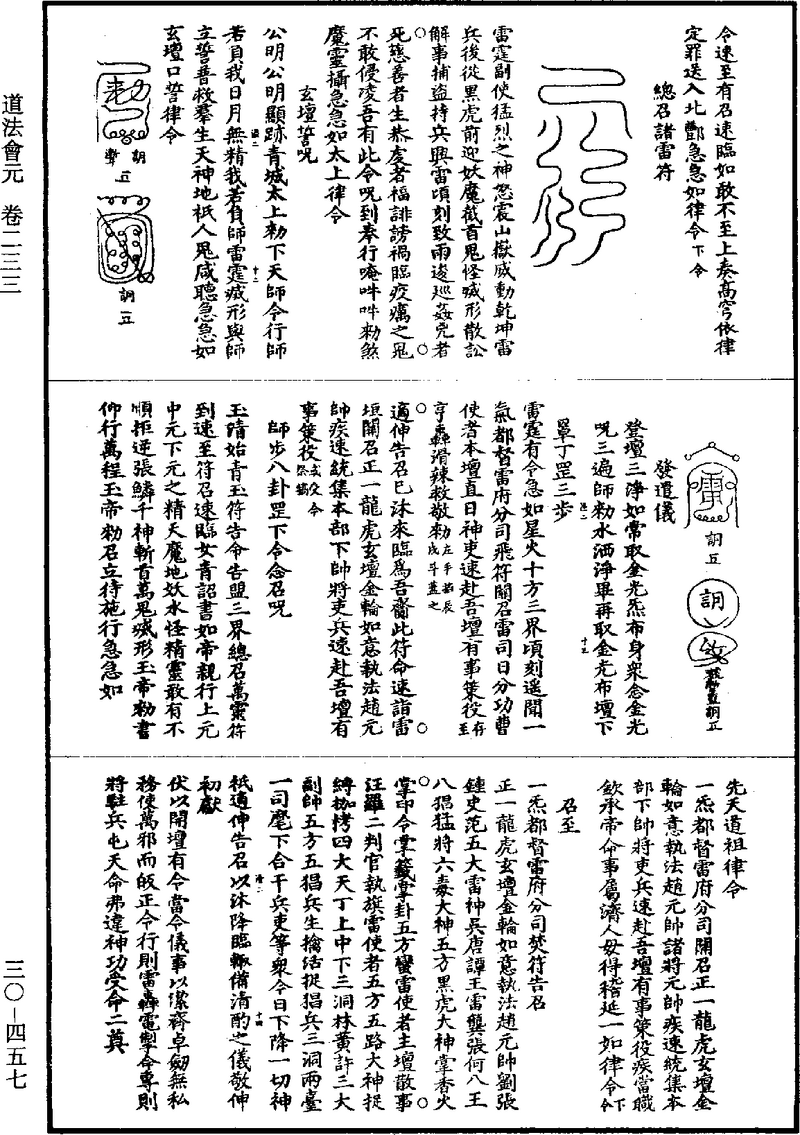 道法會元　卷二三三
三〇—四五七
令速至有召速臨如敢不至上奏高穹依律
定罪送入北酆急急如律令下令
總召諸雷符
雷霆副使猛烈之神怒震山嶽威動乾坤雷
兵後從黑虎前迎妖魔截首鬼怪滅形散訟
解事捕盜持兵興雷頃刻致雨逡巡姦兇者
死慈善者生恭虔者福誹謗禍臨疫癘之鬼
不敢侵凌吾有此令呪到奉行唵吽吽勑煞
魔靈攝急急如太上律令
玄壇誓呪
公明公明顯跡青城太上勑下天師令行師
若負我日月無精我若負師雷霆滅形與師
立誓普救羣生天神地祇人鬼咸聽急急如
玄壇口誓律令
發遣儀
登壇三淨如常取金光炁布身衆念金光
呪三遍師勑水洒淨畢再取金光布壇下
罩丁罡三步
雷霆有令急如星火十方三界頃刻遥聞一
氣都督雷府分司飛符關召雷司日分功曹
使者本壇直日神吏速赴吾壇有事策役存至
亨轟滑辣救敬勑左手掐辰戌斗蓋之
適伸告召已沐來臨爲吾齎此符命速詣雷
垣關召正一龍虎玄壇金輪如意執法趙元
帥疾速統集本部下帥將吏兵速赴吾壇有
事策役
師步八卦罡下令念召呪
玉清始青玉符告令告盟三界總召萬靈符
到速至符召速臨女青詔書如帝親行上元
中元下元之精天魔地妖水怪精靈敢有不
順拒逆張鱗千神斬首萬鬼滅形玉帝勑書
仰行萬程玉帝勑召立待施行急急如
先天道祖律令
一炁都督雷府分司關召正一龍虎玄壇金
輪如意執法趙元帥諸將元帥疾速統集本
部下帥將吏兵速赴吾壇有事策役疾當職
欽承帝命事屬濟人毋得稽延一如律令下令
召至
一炁都督雷府分司焚符告召
正一龍虎玄壇金輪如意執法趙元帥劉張
鍾史范五大雷神吳唐譚王雷龔張何八王
八猖猛將六毒大神五方黑虎大神掌香火
掌印令掌籤掌卦五方蠻雷使者主壇散事
汪羅二判官執旗雷使者五方五路大神捉
縛枷栲四大天丁上中下三洞林黄許三大
副師五方五猖兵生擒活捉猖兵三洞兩臺
一司麾下合干兵吏等衆今日下降一切神
祇適伸告召以沐降臨輙備清酌之儀敬伸
初獻
伏以開壇有令當今儀事以潔齋卓劒無私
務使萬邪而皈正令行則雷轟電掣命專則
將駐兵屯天命弗違神功受命二奠